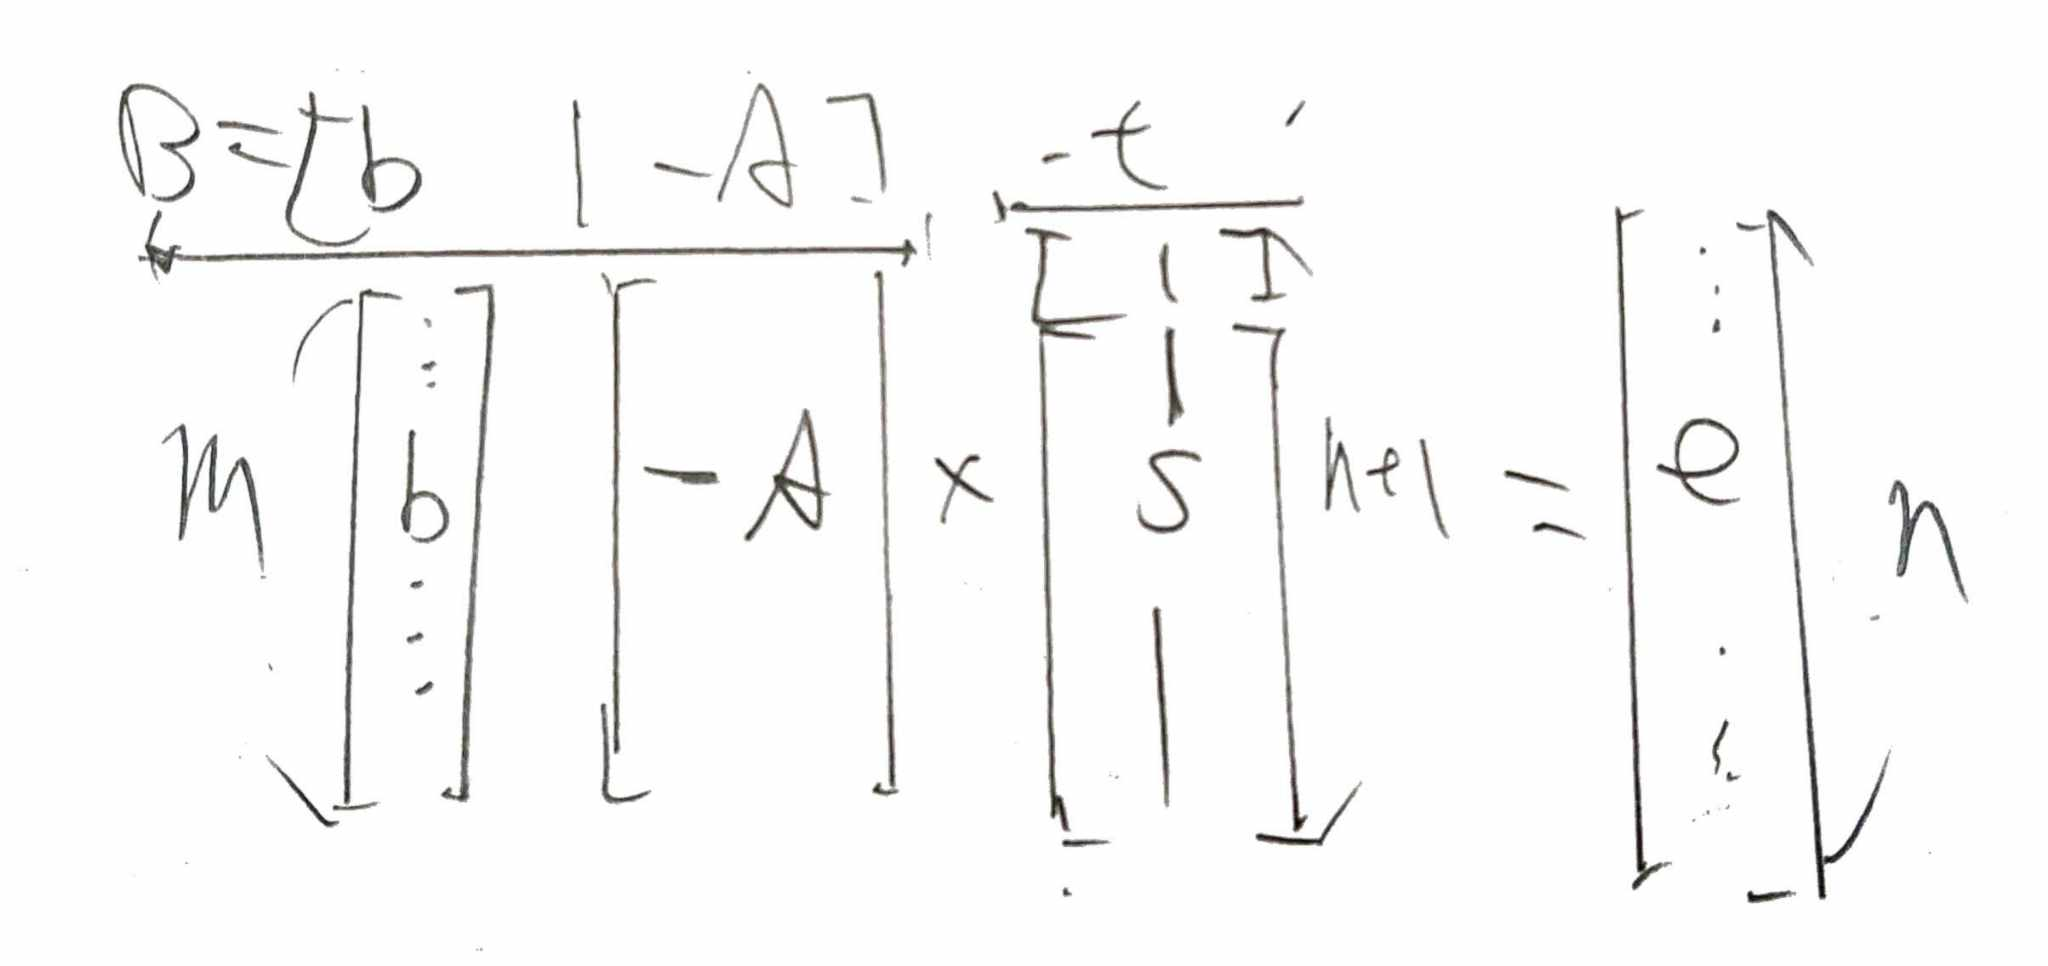 B = [b | -A] -t
[ 1 ]
m [ b ] [ -A ] × [ s ] n+1 = [ e ] n